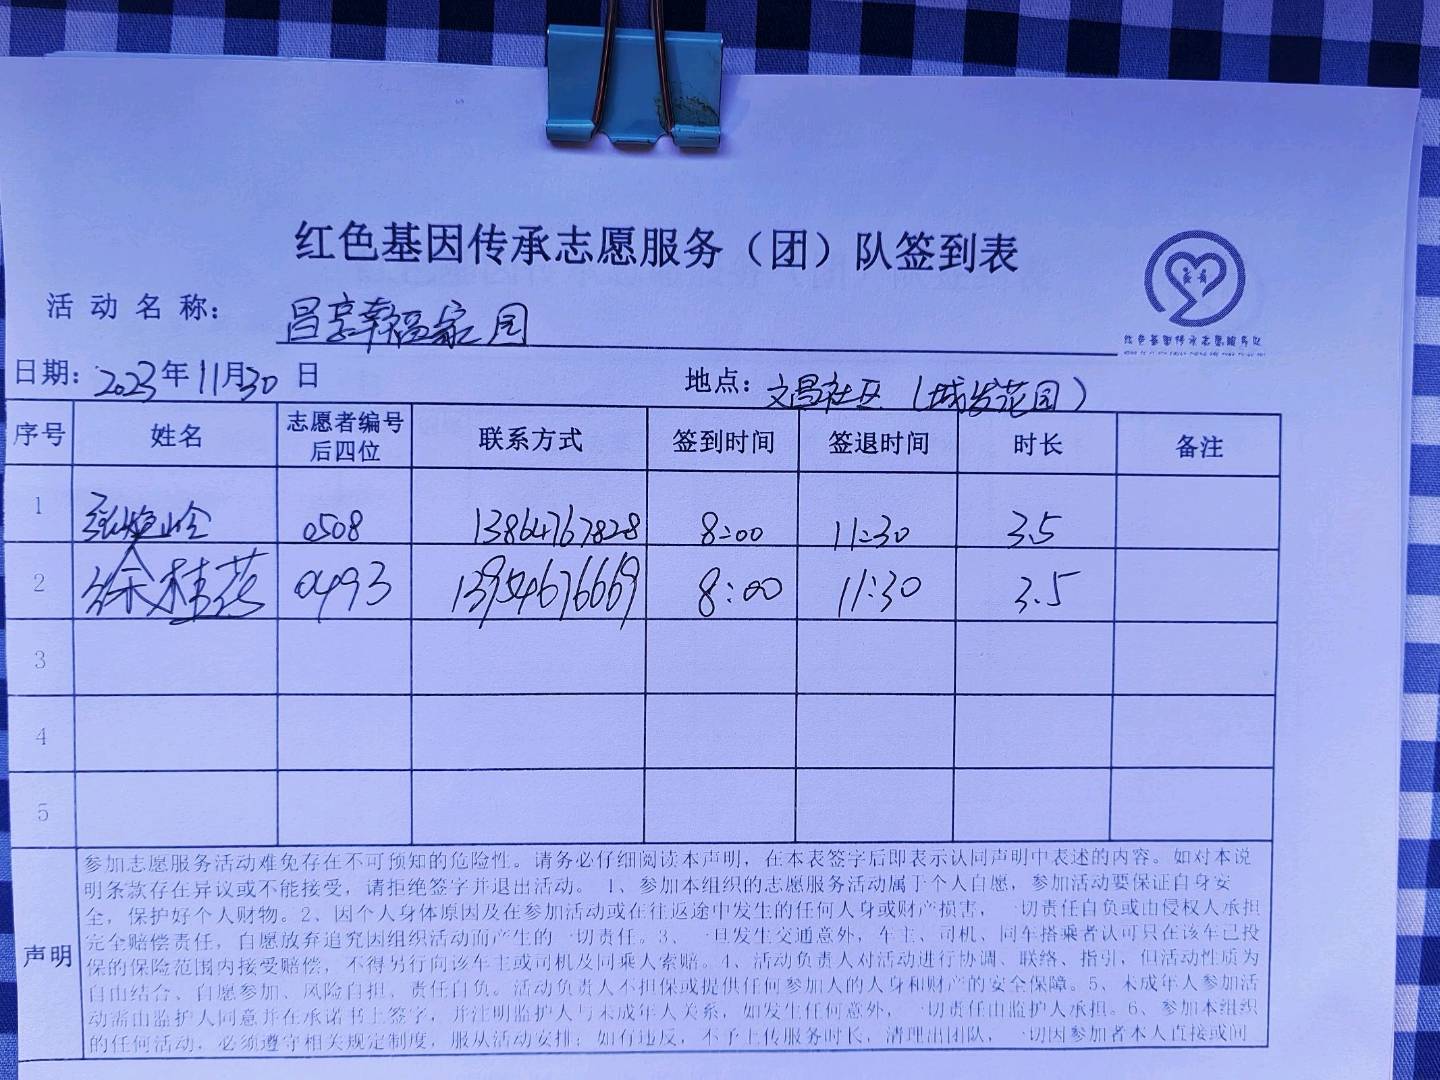 红色基因传承志愿服务（团）队签到表
红色基因传承志愿服务队
活动名称： 昌享幸福家园
日期：2023年11月30日 地点：文昌社区（城发花园）
序号 姓名 志愿者编号后四位 联系方式 签到时间 签退时间 时长 备注
1 0508 13864767828 8:00 11:30 3.5
2 徐桂花 0493 13954676669 8:00 11:30 3.5
3
4
5
声明
参加志愿服务活动难免存在不可预知的危险性。请务必仔细阅读本声明，在本表签字后即表示认同声明中表述的内容。如对本说
明条款存在异议或不能接受，请拒绝签字并退出活动。 1、参加本组织的志愿服务活动属于个人自愿，参加活动要保证自身安
全，保护好个人财物。2、因个人身体原因及在参加活动或在往返途中发生的任何人身或财产损害，一切责任自负或由侵权人承担
完全赔偿责任，自愿放弃追究因组织活动而产生的一切责任。3、一旦发生交通意外，车主、司机、同车搭乘者认可只在该车已投
保的保险范围内接受赔偿，不得另行向该车主或司机及同乘人索赔。4、活动负责人对活动进行协调、联络、指引，但活动性质为
自由结合、自愿参加、风险自担、责任自负。活动负责人不担保或提供任何参加人的人身和财产的安全保障。5、未成年人参加活
动需由监护人同意并在承诺书上签字，并注明监护人与未成年人关系，如发生任何意外，一切责任由监护人承担。6、参加本组织
的任何活动，必须遵守相关规定制度，服从活动安排；如有违反，不予上传服务时长，清理出团队，一切因参加者本人直接或间